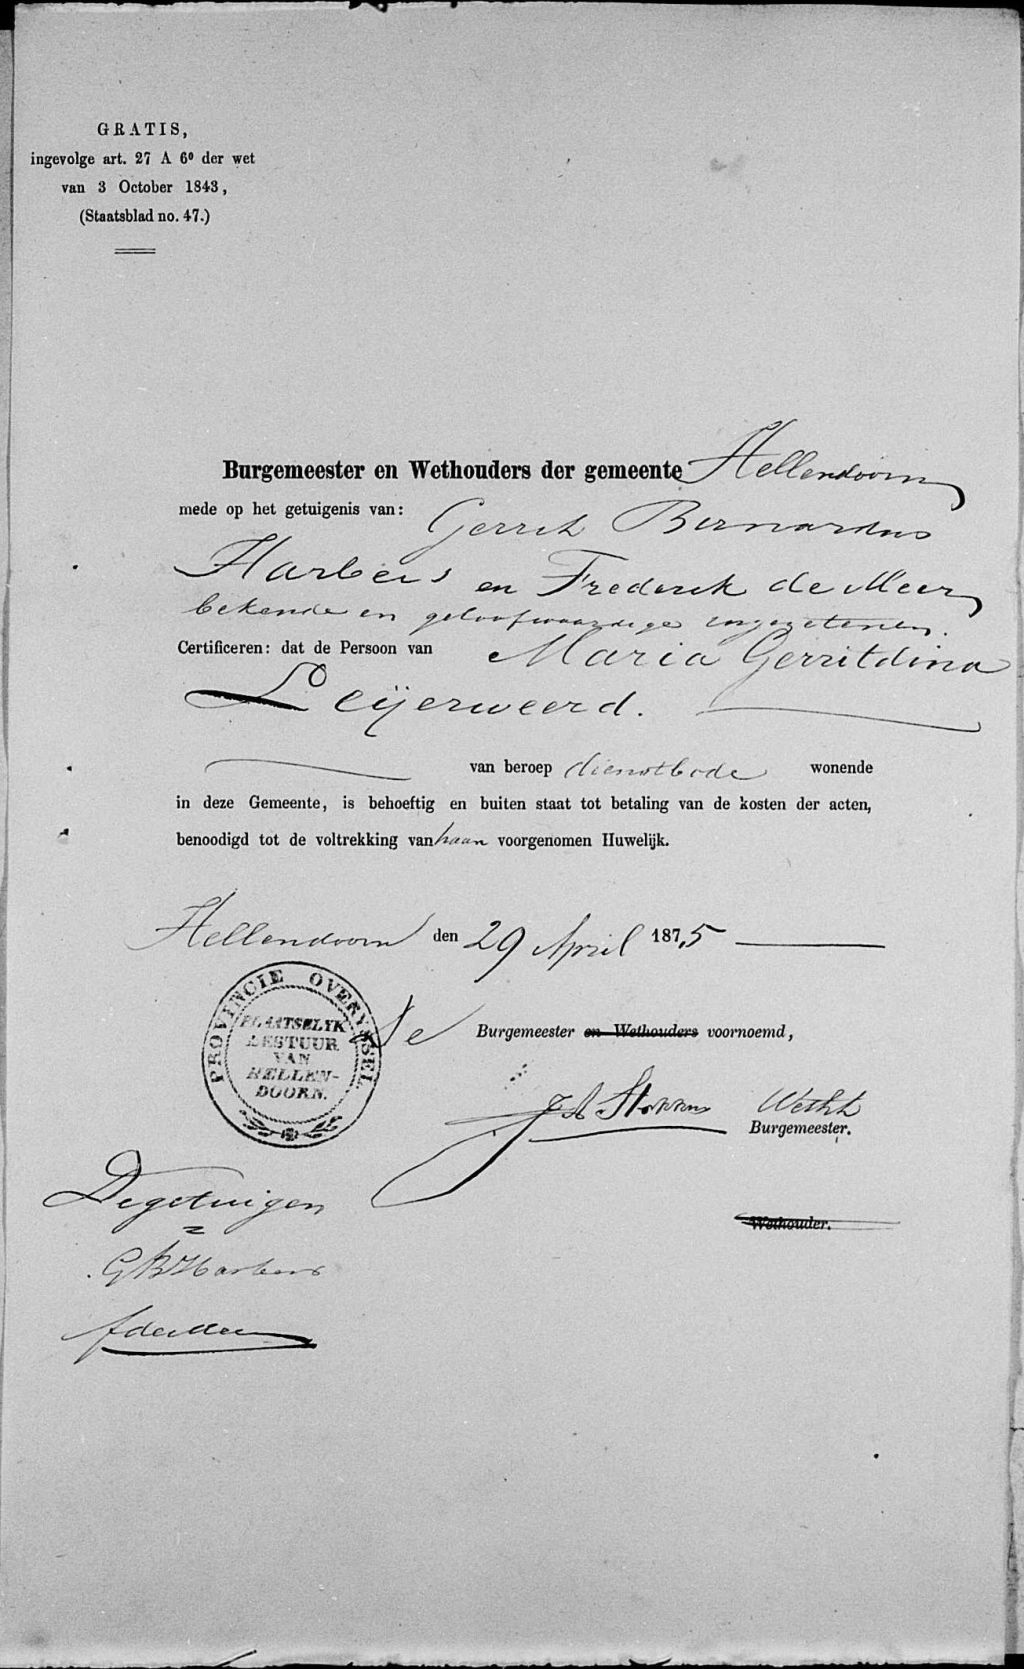 GRATIS,
ingevolge art. 27 A 6º der wet
van 3 October 1843,
(Staatsblad no. 47.)
Burgemeester en Wethouders der gemeente Hellendoorn
mede op het getuigenis van: Gerrit Bernardus
Harbers en Frederik de Meer
bekende en geloofwaardige ingezetenen.
Certificeren: dat de Persoon van Maria Gerritdina
Leijerweerd.
van beroep dienstbode wonende
in deze Gemeente, is behoeftig en buiten staat tot betaling van de kosten der acten,
benoodigd tot de voltrekking van haar voorgenomen Huwelijk.
Hellendoorn den 29 April 1875
PROVINCIE OVERYSSEL
PLAATSELYK
BESTUUR
VAN
HELLEN-
DOORN.
De Burgemeester en Wethouders voornoemd,
Wethr
Burgemeester.
De getuigen
Wethouder.
GBHarbers
F de Meer